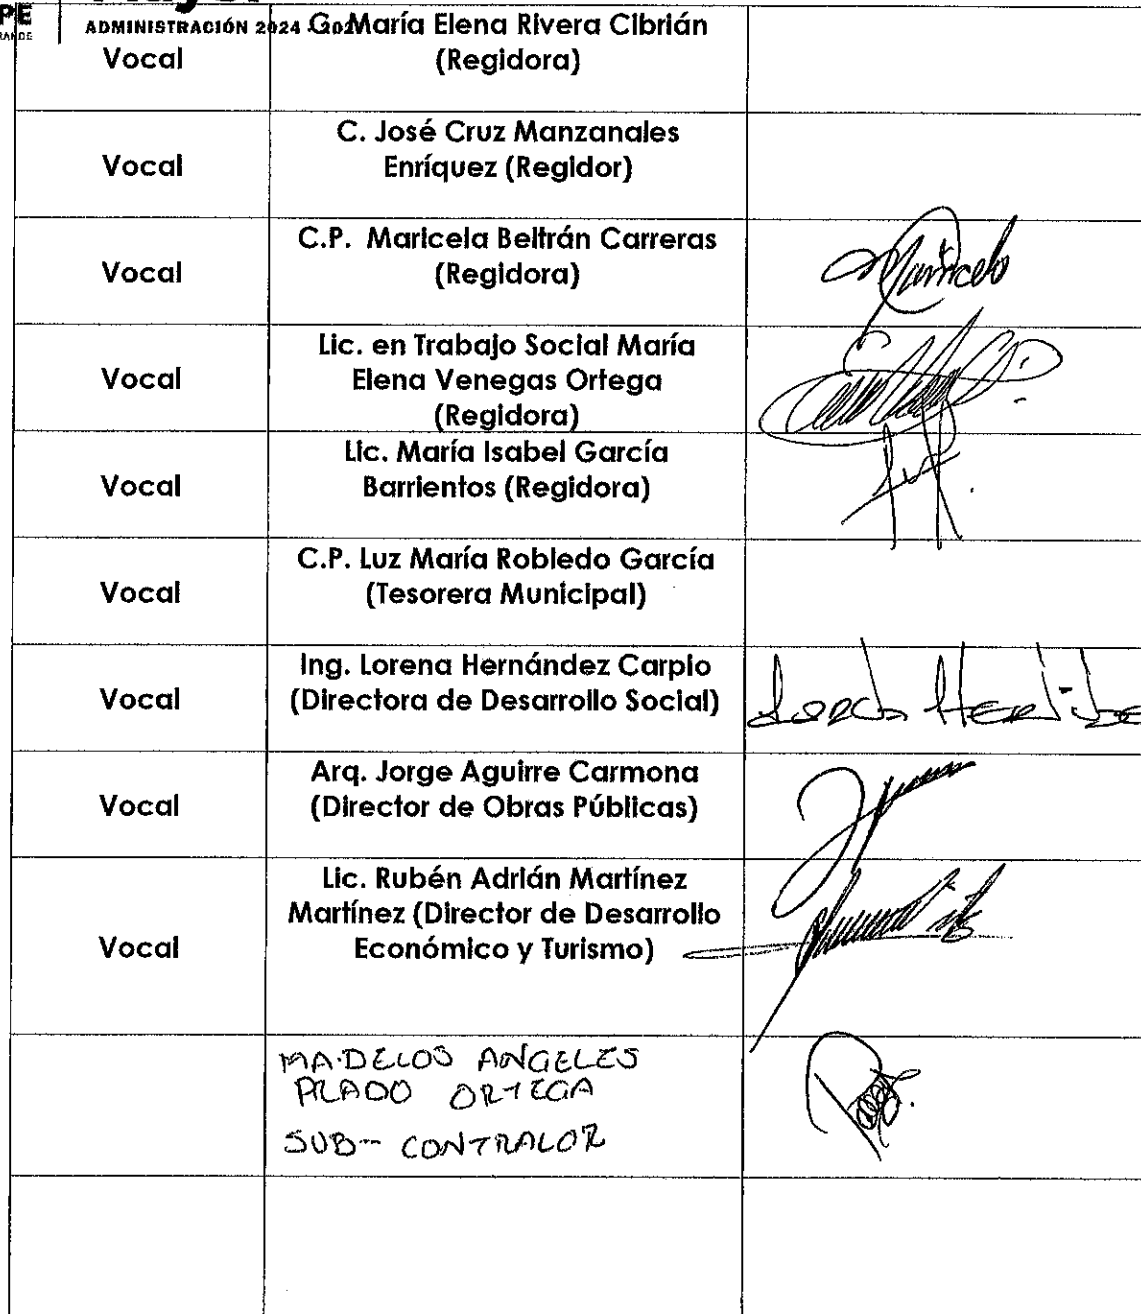 PE
ADMINISTRACIÓN 2024
Vocal
María Elena Rivera Cibrián
(Regidora)
Vocal
C. José Cruz Manzanales
Enríquez (Regidor)
Vocal
C.P. Maricela Beltrán Carreras
(Regidora)
Maricela
Vocal
Lic. en Trabajo Social María
Elena Venegas Ortega
(Regidora)
Vocal
Lic. María Isabel García
Barrientos (Regidora)
Vocal
C.P. Luz María Robledo García
(Tesorera Municipal)
Vocal
Ing. Lorena Hernández Carpio
(Directora de Desarrollo Social)
Vocal
Arq. Jorge Aguirre Carmona
(Director de Obras Públicas)
Vocal
Lic. Rubén Adrián Martínez
Martínez (Director de Desarrollo
Económico y Turismo)
MA. DE LOS ANGELES
PRADO ORTEGA
SUB-- CONTRALOR